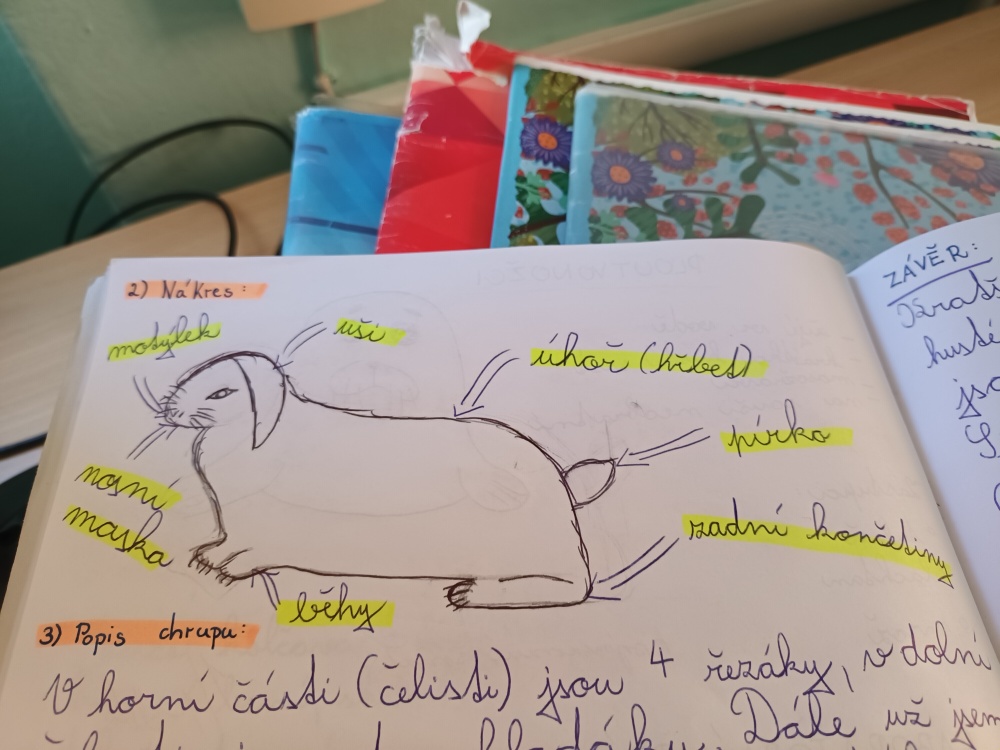 2) Nákres:
motýlek
uši
úhoř (hřbet)
pírko
nosní
maska
zadní končetiny
běhy
3) Popis chrupu:
V horní části (čelisti) jsou 4 řezáky, v dolní
Dále už jsem
ZÁVĚR:
husté